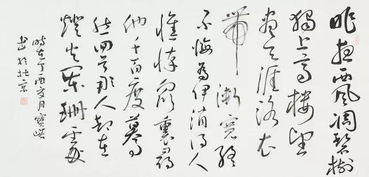 昨夜西风凋碧树
独上高楼望
尽天涯路衣
带渐宽终
不悔为伊消得人
憔悴众里寻
他千百度蓦
然回首那人却在
灯火阑珊处
于北京